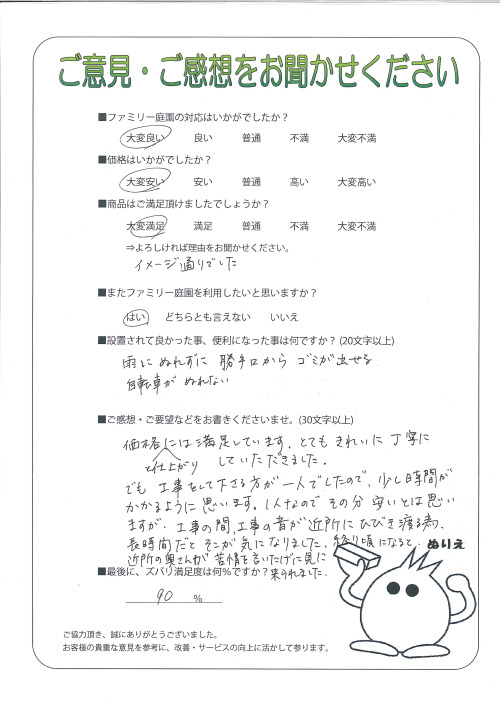 ご意見・ご感想をお聞かせください
■ファミリー庭園の対応はいかがでしたか？
大変良い 良い 普通 不満 大変不満
■価格はいかがでしたか？
大変安い 安い 普通 高い 大変高い
■商品はご満足頂けましたでしょうか？
大変満足 満足 普通 不満 大変不満
⇒よろしければ理由をお聞かせください。
イメージ通りでした
■またファミリー庭園を利用したいと思いますか？
はい どちらとも言えない いいえ
■設置されて良かった事、便利になった事は何ですか？(20文字以上)
雨にぬれずに 勝手口から ゴミが出せる
自転車が ぬれない
■ご感想・ご要望などをお書きくださいませ。(30文字以上)
価格には満足しています。とてもきれいに丁寧に
と仕上がり していただきました。
でも 工事をして下さる方が一人でしたので、少し時間が
かかるように思います。1人なので その分 安いとは思い
ますが、工事の間、工事の音が近所にひびき渡る為、
長時間だと そこが気になりました。終り頃になると、
近所の奥さんが 苦情を言いたげに見に
来られました。
ぬりえ
■最後に、ズバリ満足度は何％ですか？
90 %
ご協力頂き、誠にありがとうございました。
お客様の貴重な意見を参考に、改善・サービスの向上に活かして参ります。